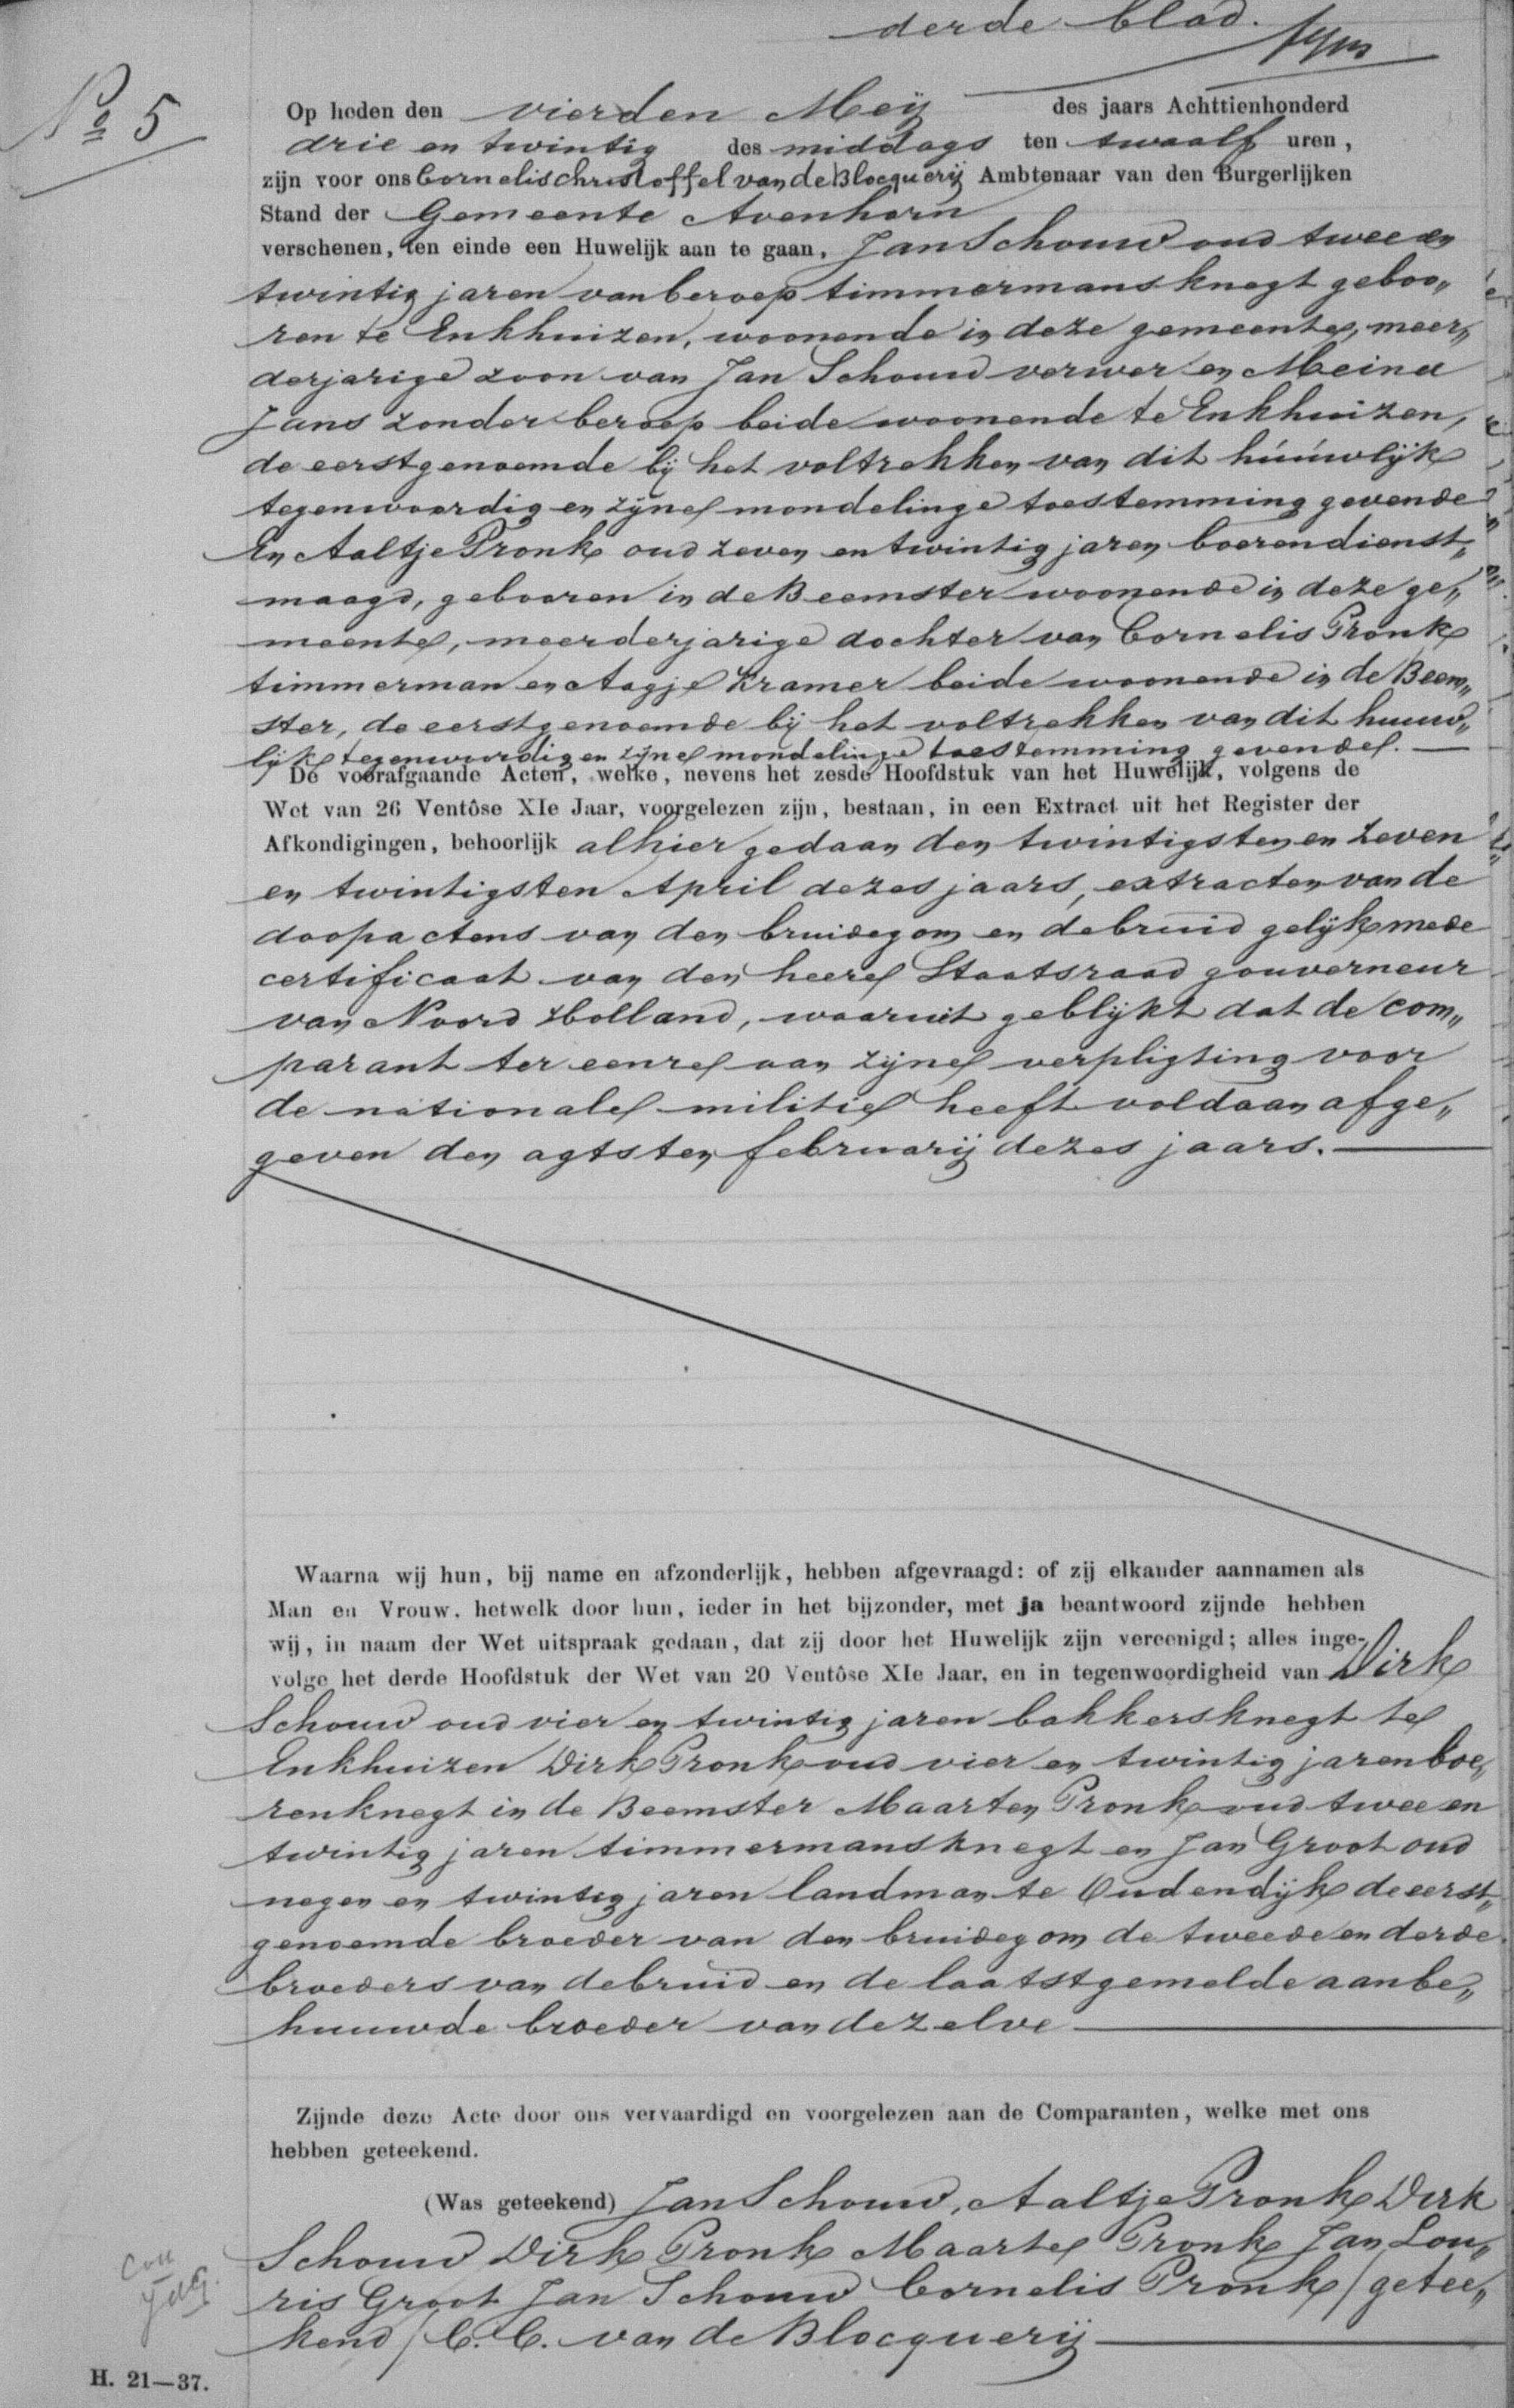 derde blad.
Nº 5
Op heden den vierden Meij des jaars Achttienhonderd
drie en twintig des middags ten twaalf uren,
zijn voor ons Cornelis Christoffel van de Blocquerij Ambtenaar van den Burgerlijken
Stand der Gemeente Avenhorn
verschenen, ten einde een Huwelijk aan te gaan, Jan Schouw oud twee en
twintig jaren van beroep timmermansknegt geboo„
ren te Enkhuizen, woonende in deze gemeente, meer„
derjarige zoon van Jan Schouw verwer en Meina
Jans zonder beroep beide woonende te Enkhuizen,
de eerstgenoemde bij het voltrekken van dit húúwlijk
tegenwoordig en zijne mondelinge toestemming gevende
En Aaltje Pronk oud zeven en twintig jaren boerendienst„
maagd, gebooren in de Beemster woonende in deze ge„
meente, meerderjarige dochter van Cornelis Pronk
timmerman en Aagje Kramer beide woonende in de Beem„
ster, de eerstgenoemde bij het voltrekken van dit huuw„
lijk tegenwoordig en zijne mondelinge toestemming gevende.
De voorafgaande Acten, welke, nevens het zesde Hoofdstuk van het Huwelijk, volgens de
Wet van 26 Ventôse XIe Jaar, voorgelezen zijn, bestaan, in een Extract uit het Register der
Afkondigingen, behoorlijk alhier gedaan den twintigsten en zeven
en twintigsten April dezes jaars, extracten van de
doopactens van den bruidegom en de bruid gelijk mede
certificaat van den heere Staatsraad gouverneur
van Noord Holland, waaruit geblijkt dat de com„
parant ter eenre aan zijne verpligting voor
de nationale militie heeft voldaan afge„
geven den agtsten februarij dezes jaars.
Waarna wij hun, bij name en afzonderlijk, hebben afgevraagd: of zij elkander aannamen als
Man en Vrouw, hetwelk door hun, ieder in het bijzonder, met ja beantwoord zijnde hebben
wij, in naam der Wet uitspraak gedaan, dat zij door het Huwelijk zijn vereenigd; alles inge-
volge het derde Hoofdstuk der Wet van 20 Ventôse XIe Jaar, en in tegenwoordigheid van Dirk
Schouw oud vier en twintig jaren bakkersknegt te
Enkhuizen Dirk Pronk oud vier en twintig jaren boe„
renknegt in de Beemster Maarten Pronk oud twee en
twintig jaren timmermansknegt en Jan Groot oud
negen en twintig jaren landman te Oudendijk de eerst„
genoemde broeder van den bruidegom de tweede en derde
broeders van de bruid en de laatstgemelde aanbe„
huuwde broeder van dezelve
Zijnde deze Acte door ons vervaardigd en voorgelezen aan de Comparanten, welke met ons
hebben geteekend.
(Was geteekend) Jan Schouw, Aaltje Pronk Dirk
Schouw Dirk Pronk Maarte Pronk Jan Lou„
ris Groot Jan Schouw Cornelis Pronk / getee„
kend / C. C. van de Blocquerij
H. 21—37.